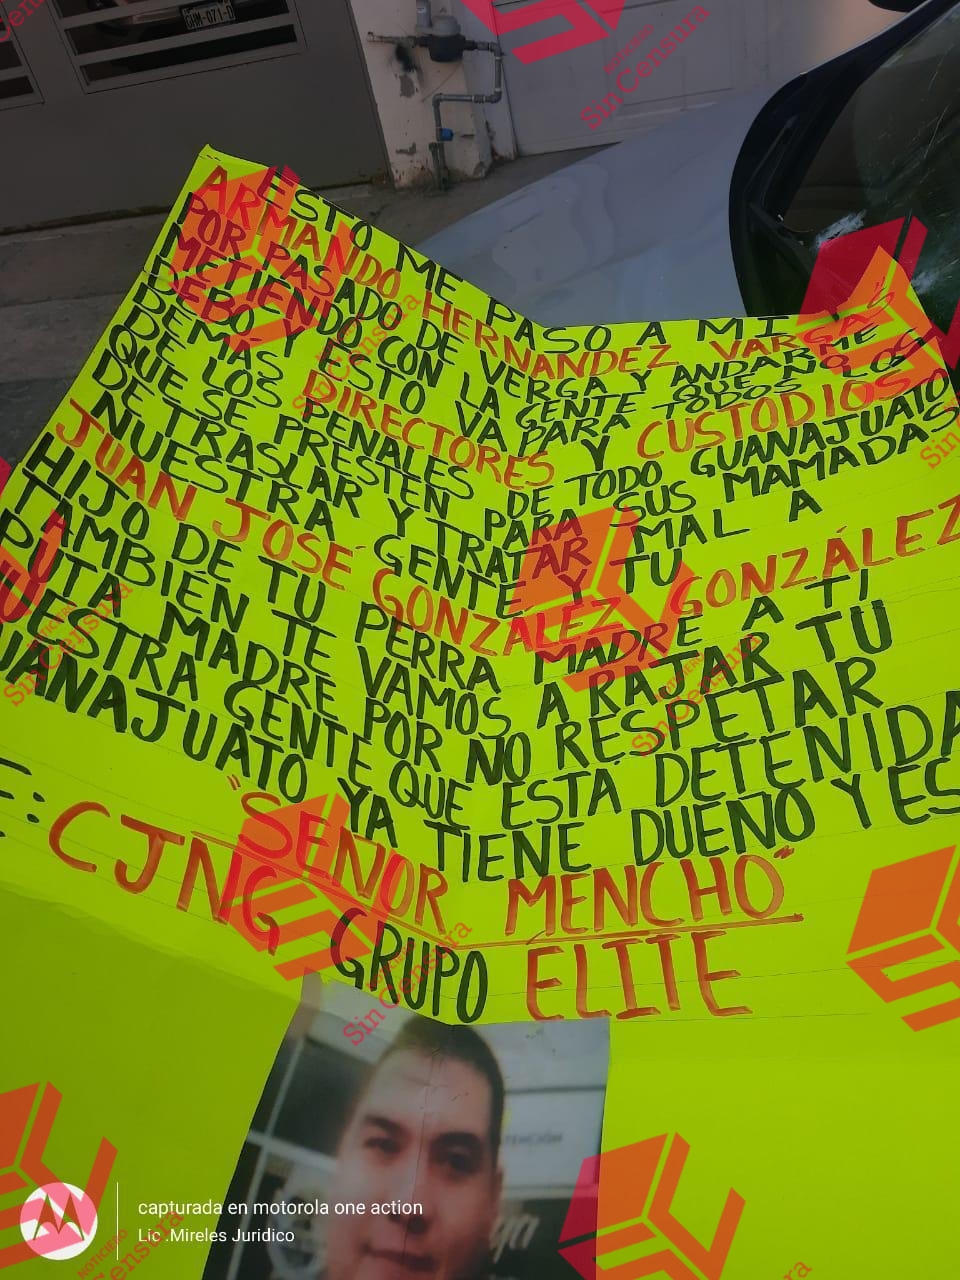 GHM-071-D
ESTO ME PASO A MI
ARMANDO HERNANDEZ VARGAS
POR PASADO DE VERGA Y ANDARME
METIENDO CON LA GENTE QUE NO LOS
DEBO Y ESTO VA PARA TODOS
DEMÁS DIRECTORES Y CUSTODIOS
QUE LOS PENALES DE TODO GUANAJUATO
DE SE PRESTEN PARA SUS MAMADAS
DE TRASLAR Y TRATAR MAL A
NUESTRA GENTE Y TU
JUAN JOSÉ GONZALEZ GONZÁLEZ
HIJO DE TU PERRA MADRE A TI
TAMBIÉN TE VAMOS A RAJAR TU
PUTA MADRE POR NO RESPETAR
NUESTRA GENTE QUE ESTA DETENIDA
GUANAJUATO YA TIENE DUEÑO Y ES
"SEÑOR MENCHO"
CJNG GRUPO ELITE
NOTICIERO
Sin Censura
capturada en motorola one action
Lic .Mireles Juridico